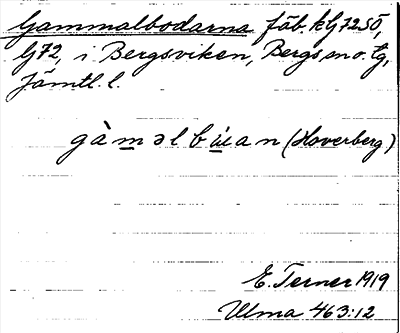 Gammalbodarna fäb. kG72SÖ,
G72, i Bergsviken, Bergs sn o. tg,
Jämtl. l.
gàmәlbúan (Hoverberg)
E. Terner 1919
Ulma 463:12